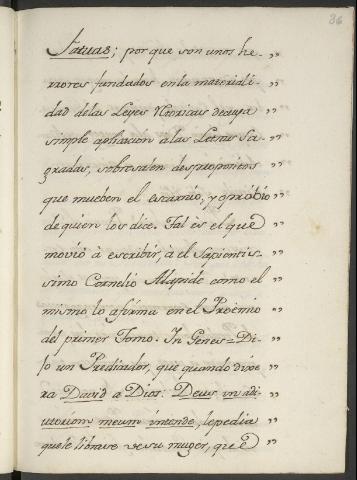 36
Fatuas; por que son unos he- "
rrores fundados en la materiali- "
dad de las Leyes Retoricas de cuya "
simple apliacion a las Letras Sa- "
gradas, sobresalen desproposito s "
que mueben el escarnio, y oprobio "
de quien los dice. Tal ès el que "
moviò à escribir, à el Sapientis- "
simo Cornelio Alapide como el "
mismo lo afirma en el Proemio "
del primer Tomo: In Genes = Di- "
jo un Predicador, que quando dixe- "
ra David a Dios: Deus in adi- "
utorium meum intende, le pedia "
que le librase de su muger, que "